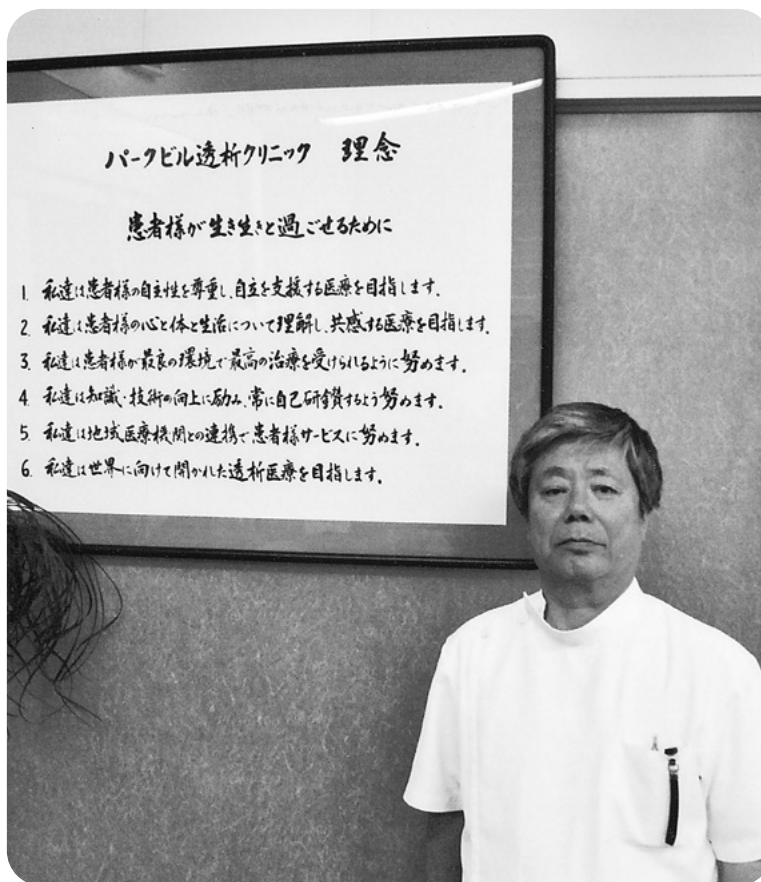 パークビル透析クリニック 理念
患者様が生き生きと過ごせるために
1. 私達は患者様の自主性を尊重し、自立を支援する医療を目指します。
2. 私達は患者様の心と体と生活について理解し、共感する医療を目指します。
3. 私達は患者様が最良の環境で最高の治療を受けられるように努めます。
4. 私達は知識・技術の向上に励み、常に自己研鑽するよう努めます。
5. 私達は地域医療機関との連携で患者様サービスに努めます。
6. 私達は世界に向けて開かれた透析医療を目指します。